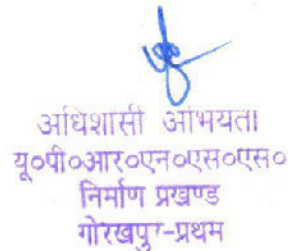 अधिशासी अभियंता
यू०पी०आर०एन०एस०एस०
निर्माण प्रखण्ड
गोरखपुर-प्रथम